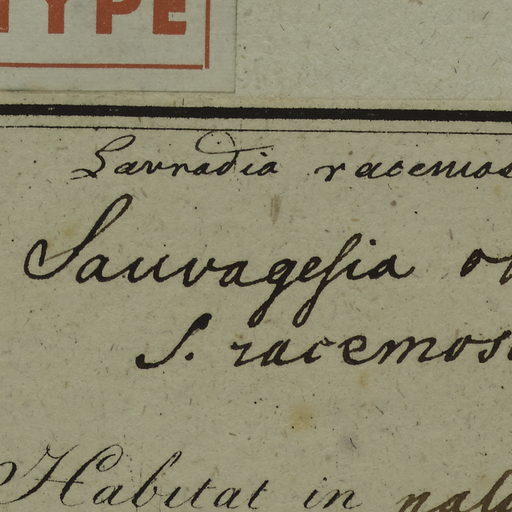 TYPE
Lavradia racemos
Sauvagesia o
S. racemos
Habitat in